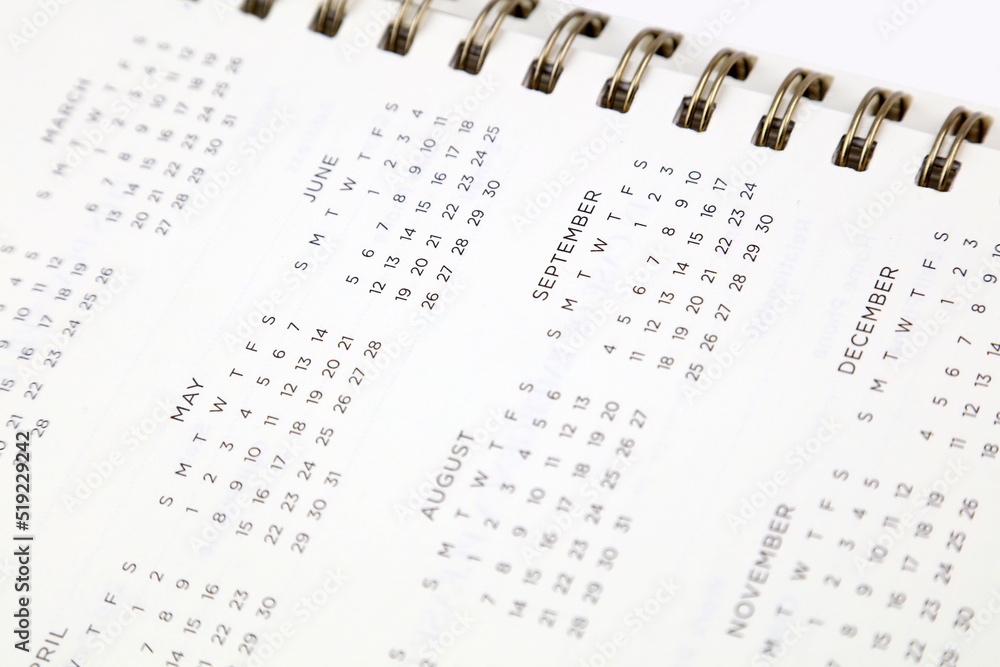 MARCH
S M T W T F S
1 2 3 4 5
6 7 8 9 10 11 12
13 14 15 16 17 18 19
20 21 22 23 24 25 26
27 28 29 30 31
JUNE
S M T W T F S
1 2 3 4
5 6 7 8 9 10 11
12 13 14 15 16 17 18
19 20 21 22 23 24 25
26 27 28 29 30
SEPTEMBER
S M T W T F S
1 2 3
4 5 6 7 8 9 10
11 12 13 14 15 16 17
18 19 20 21 22 23 24
25 26 27 28 29 30
DECEMBER
S M T W T F S
1 2 3
4 5 6 7 8 9 10
11 12 13 14
18 19
MAY
S M T W T F S
1 2 3 4 5 6 7
8 9 10 11 12 13 14
15 16 17 18 19 20 21
22 23 24 25 26 27 28
29 30 31
AUGUST
S M T W T F S
1 2 3 4 5 6
7 8 9 10 11 12 13
14 15 16 17 18 19 20
21 22 23 24 25 26 27
28 29 30 31
NOVEMBER
M T W T F S
1 2 3 4 5
8 9 10 11 12
15 16 17 18 19
22 23 24 25 26
30
PRIL
T F S
1 2
7 8 9
14 15 16
21 22 23
29 30
Adobe Stock | #519229242